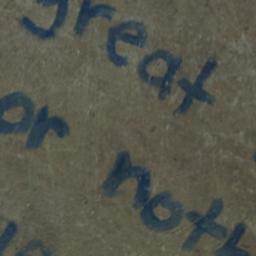 great
or noth